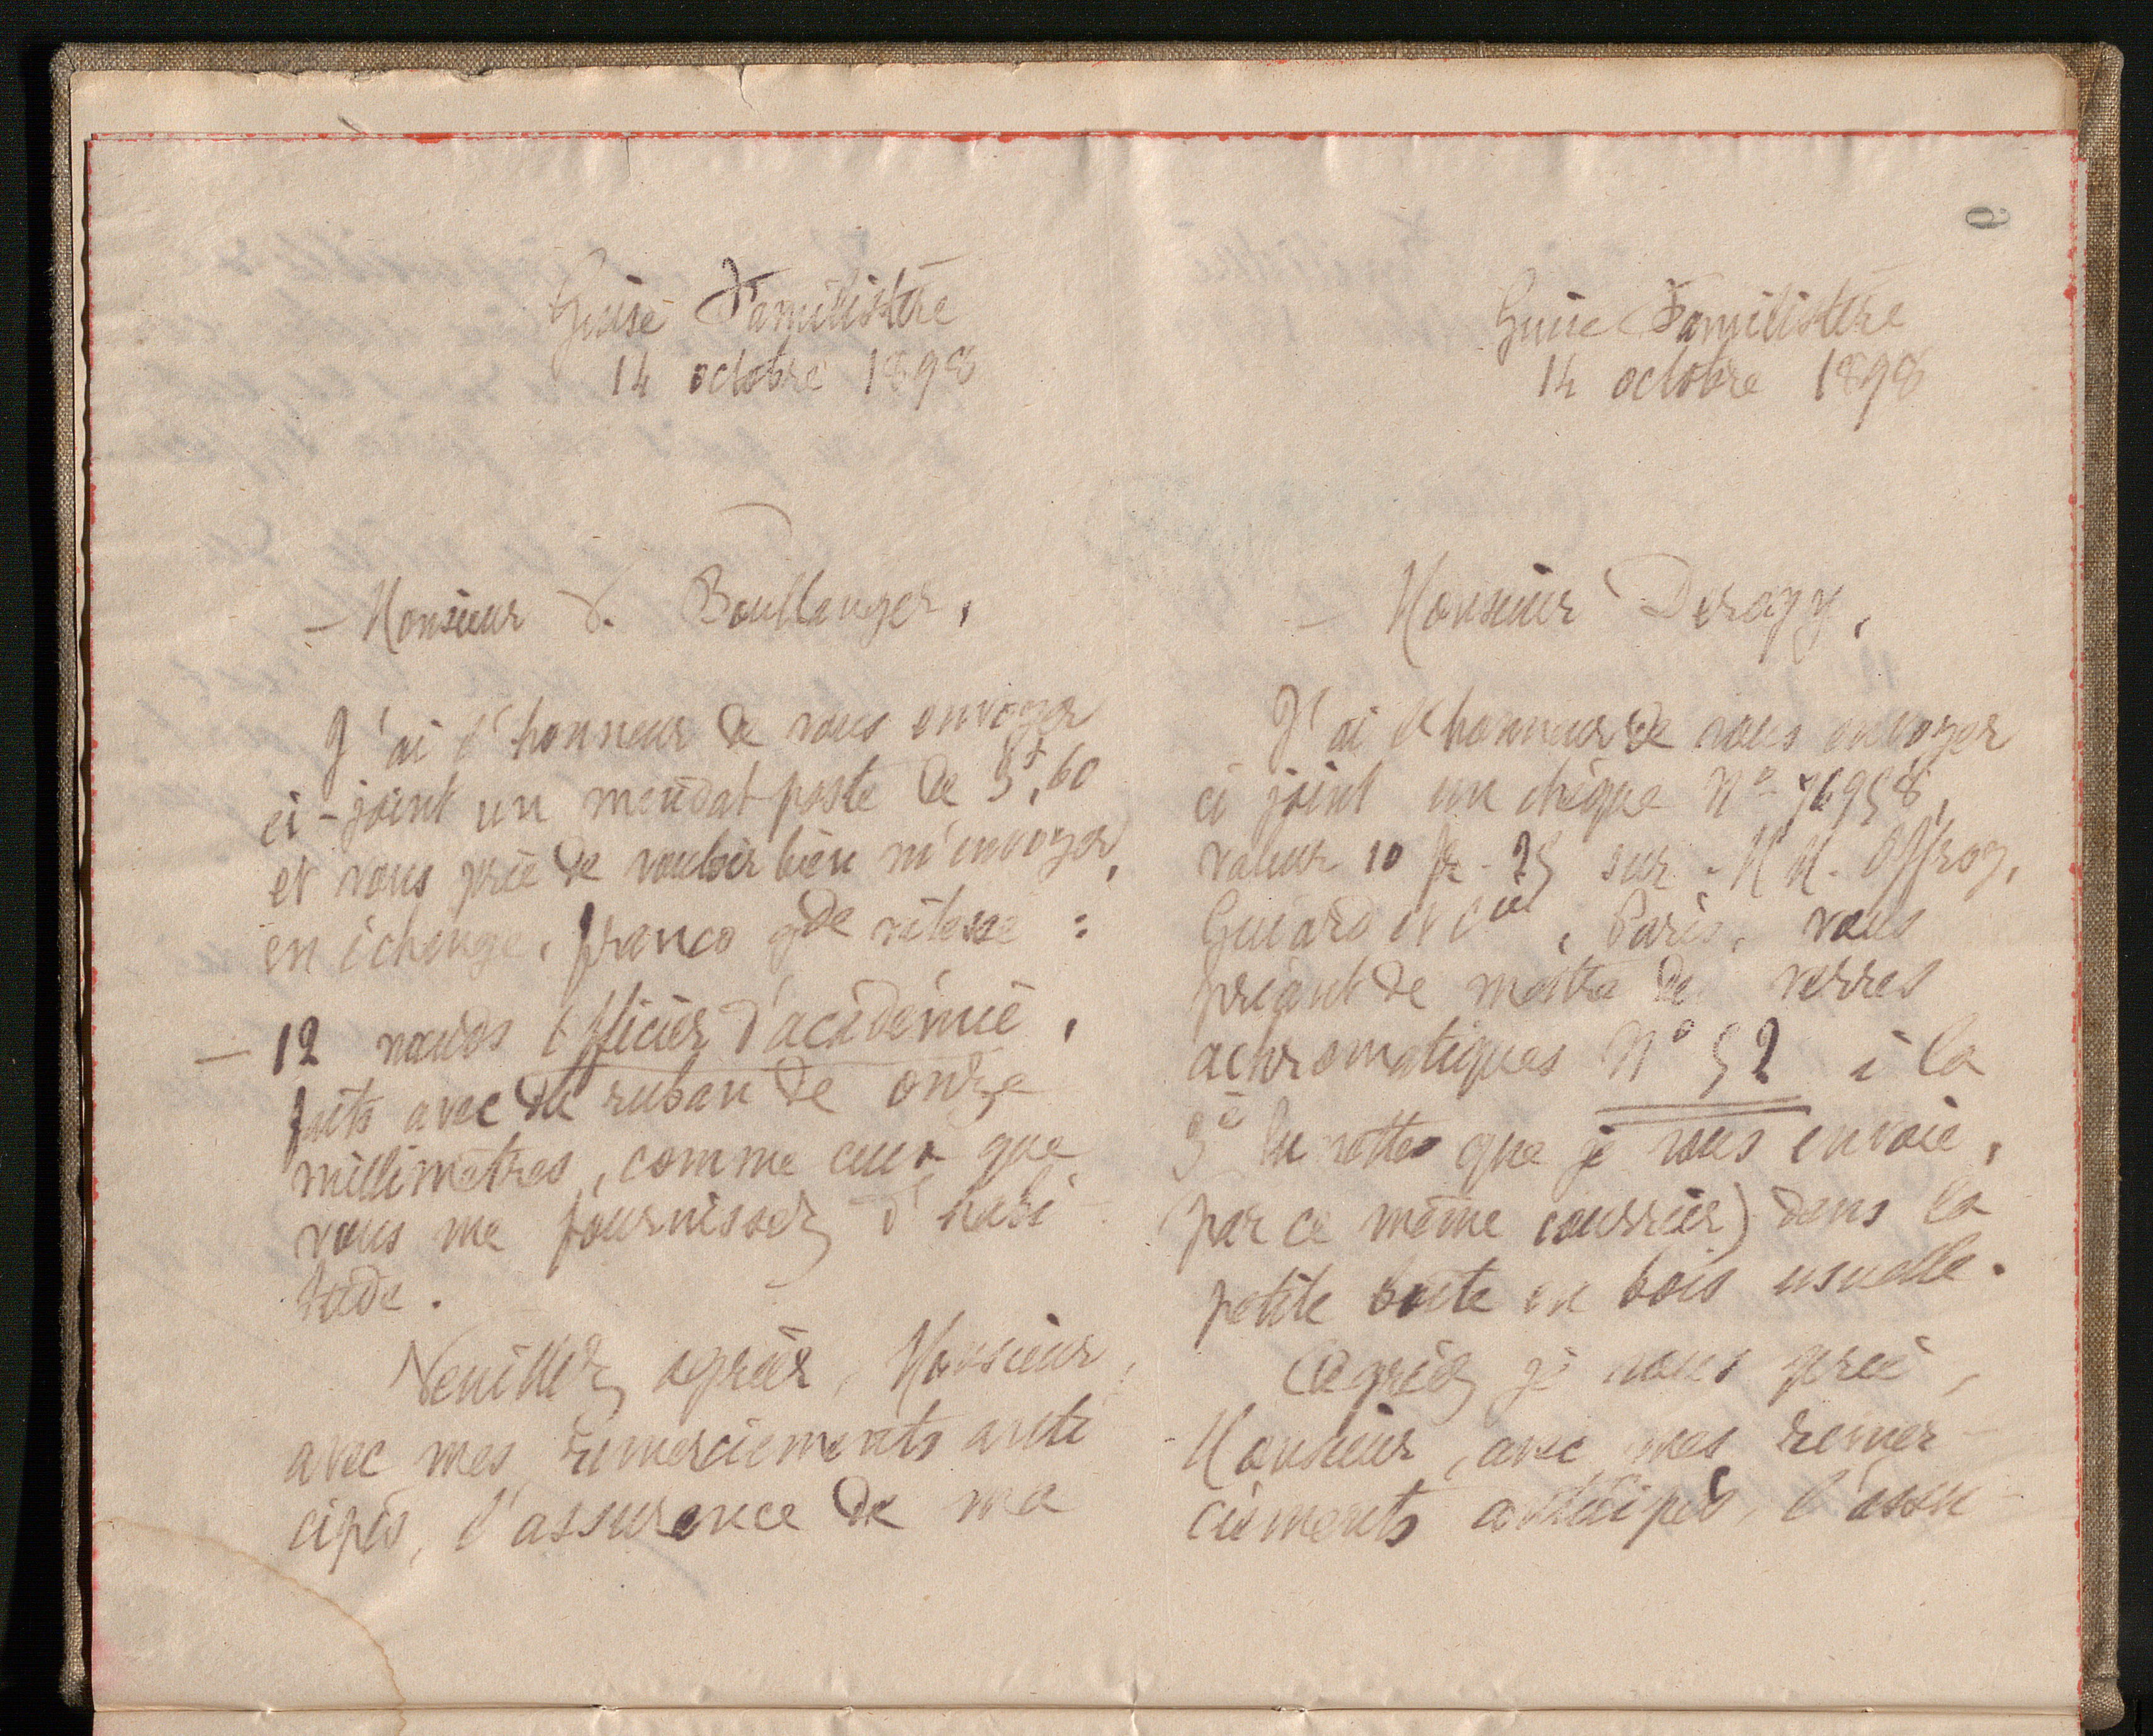 Guise Familistère
14 octobre 1898
– Monsieur S. Boullanger,
J'ai l'honneur de vous envoyer
ci-joint un mandat-poste de 3f,60
et vous prie de vouloir bien m'envoyer,
en échange, franco gde vitesse :
– 12 nœuds officier d'académie,
faits avec du ruban de onze
millimètres, comme ceux que
vous me fournissez d'habi-
tude.
Veuillez agréer, Monsieur,
avec mes remerciements anti
cipés, l'assurance de ma
6
Guise Familistère
14 octobre 1898
– Monsieur Derogy,
J'ai l'honneur de vous envoyer
ci joint un chèque No 76958,
valeur 10 fr. 25 sur MM. Offroy,
Guiard et Cie, Paris, vous
priant de mettre des verres
achromatiques No 52 à la
3e lunettes que je vous envoie,
par ce même courrier) dans la
petite boîte en bois usuelle.
Agréez je vous prie,
Monsieur, avec mes remer-
ciements anticipés, l'assu-